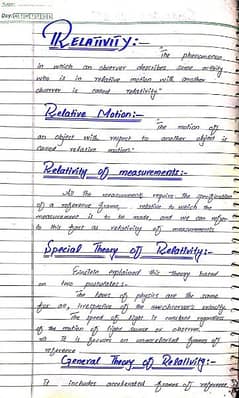 Day:
RELATIVITY:-
"The phenomenon
in which an observer describes some activity
who is in relative motion with another
observer is called relativity"
Relative Motion:-
"The motion of
an object with respect to another object is
called relative motion"
Relativity of measurements:-
As the measurement require the specification
of a reference frame, relative to which the
measurement is to be made, and we can refer
to this fact as relativity of measurements
Special Theory of Relativity:-
Einstein explained this theory based
on two postulates:
The laws of physics are the same
for all, irrespective of the observer's velocity
The speed of light is constant regardless
of the motion of light source or observer.
It is for an unaccelerated frames of
reference
General Theory of Relativity:-
It includes accelerated frames of reference